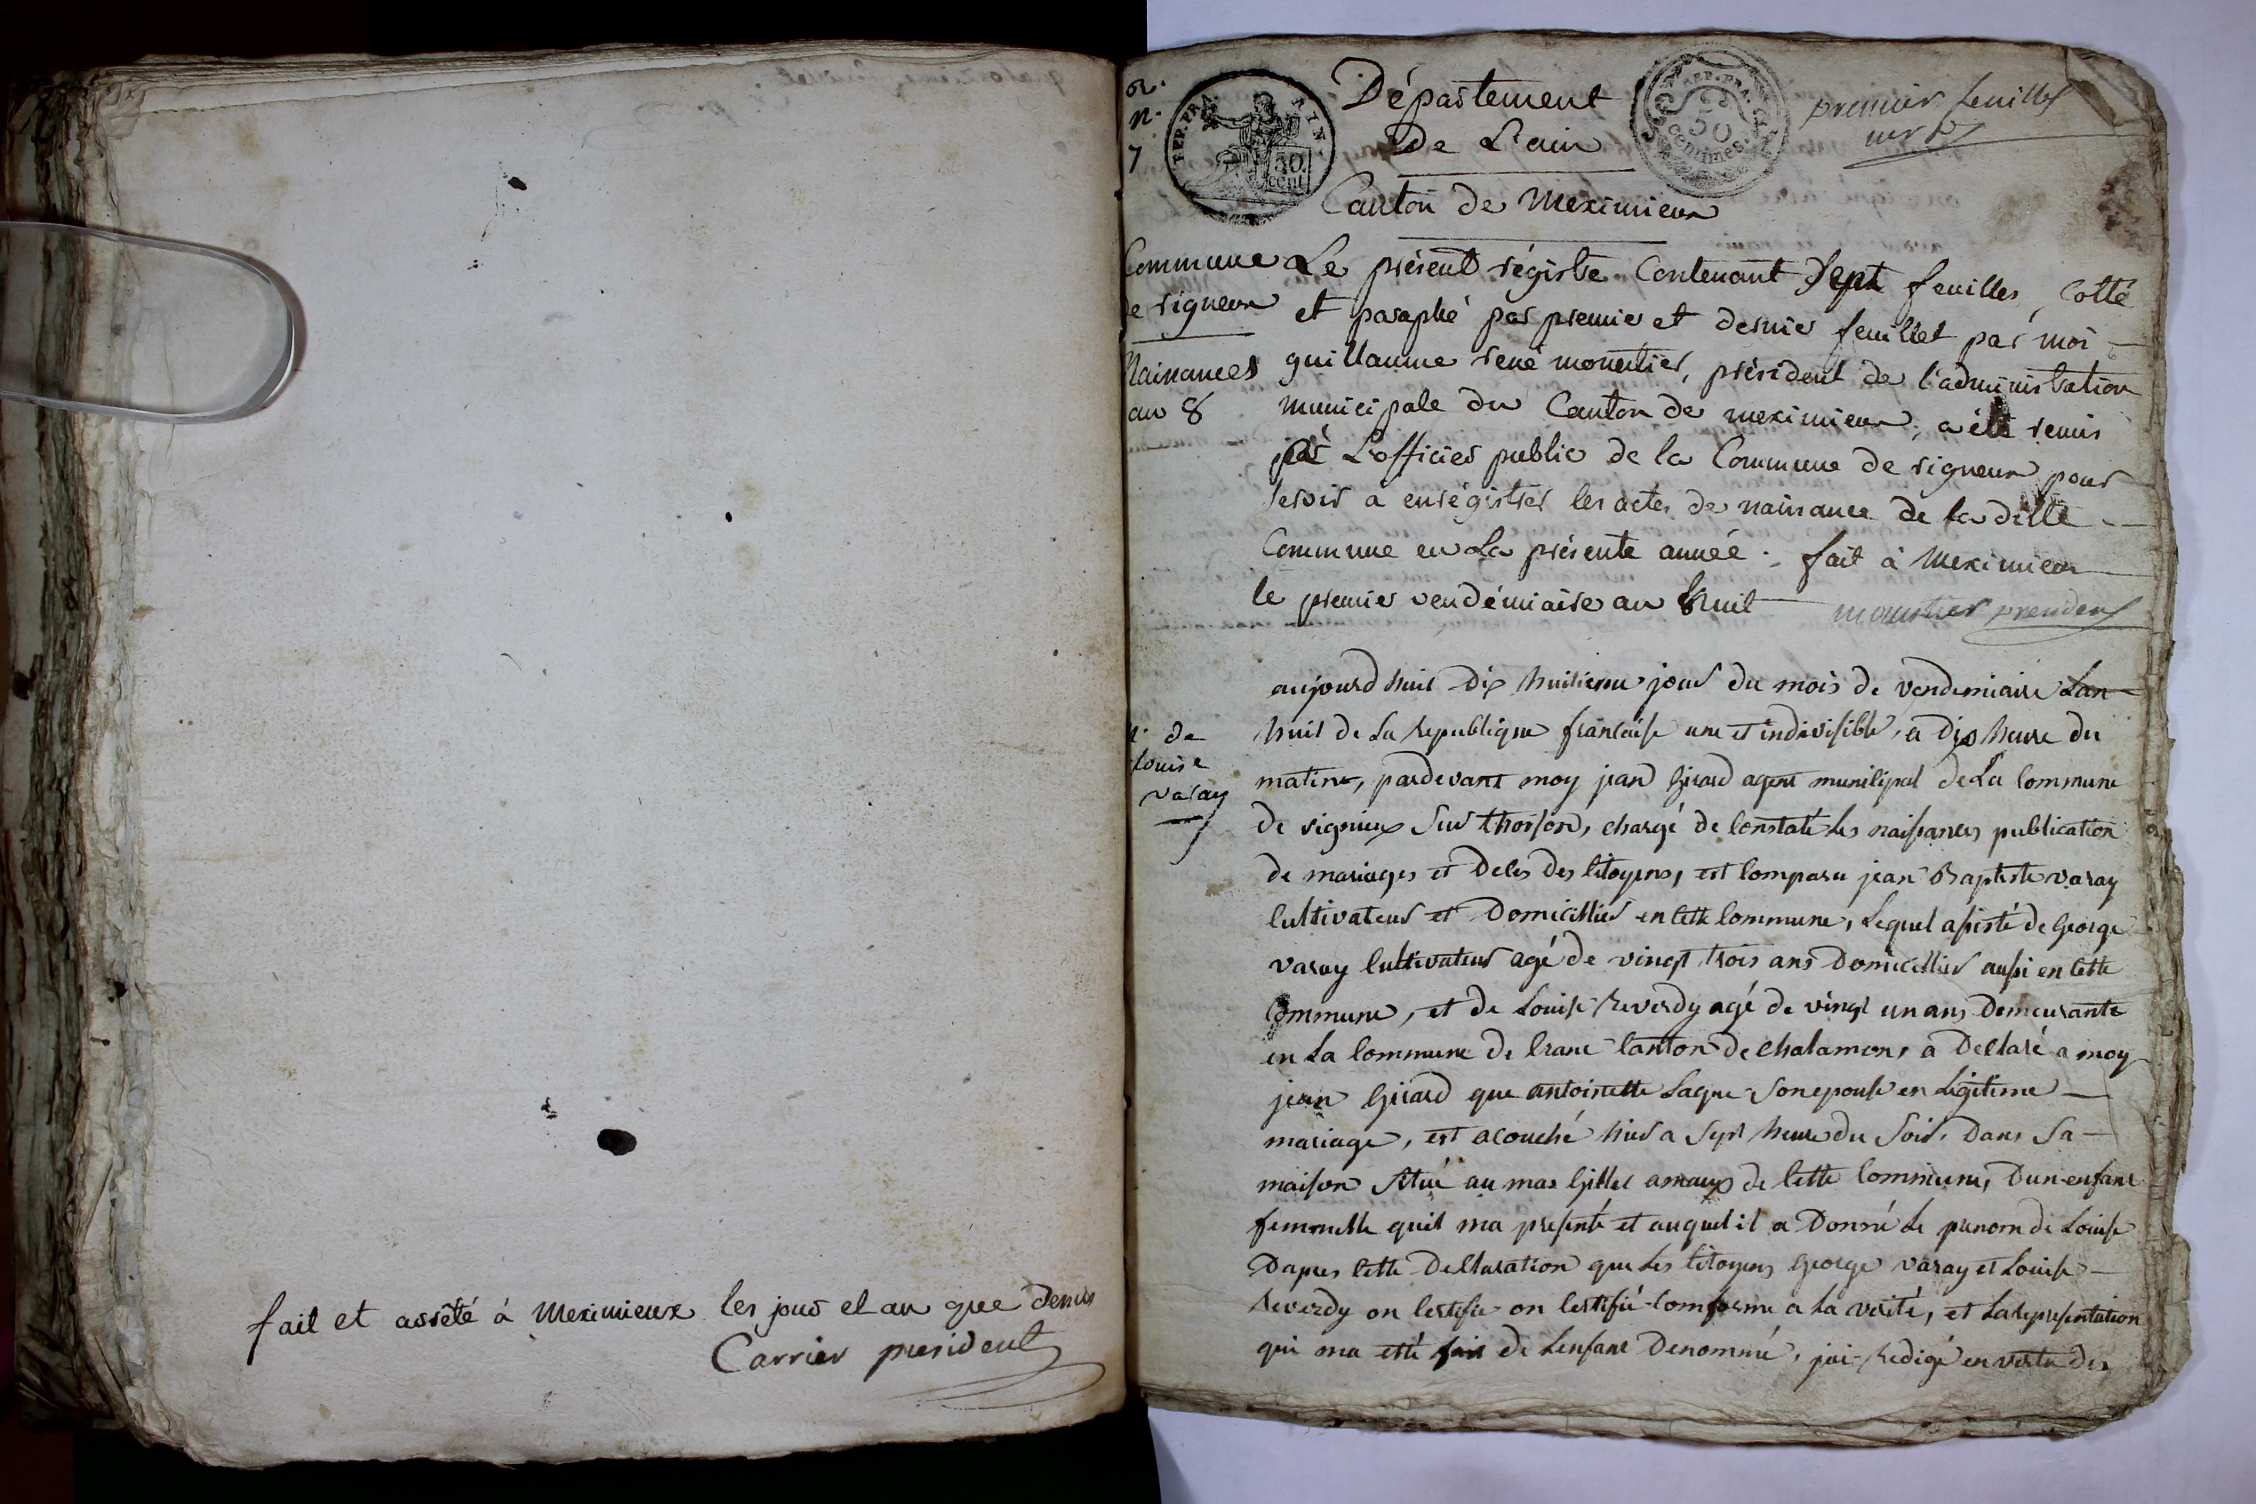 fait et arrêté à Meximieux les jour et an que dessus
Carrier president
R.
n.
7
REP. FRA.
AIN.
50.
cent
Département
de L'ain
REP. FRA.
50
centimes
premier feuillet
Canton de Meximieux
Commune
de rigneux
Naissances
an 8
Le présent régistre Contenant Sept feuilles, Cotté
et paraphé par premier et dernier feuillet par moi
guillaume réné monestier, président de l'administration
municipale du Canton de meximieux, a été remis
par L'officier public de la Commune de rigneux pour
servir a enrégistrer les actes de naissance de la ditte
Commune en La présente année. fait à Meximieux
le premier vendémiaire an huit
president
de
Louise
varay
aujourd huit Dix huitieme jour du mois de vendemiaire Lan
huit de La republique francaise une et indivisible, a Dix heure du
matine, pardevant moy jean Girard agent municipal de La Commune
de rignieux Sur thoison, chargé de Constate Les naissances publication
de mariages et Deces des Citoyens, est Comparu jean Baptiste varay
Cultivateur et Domicillier en Cette Commune, Lequel assisté de George
varay Cultivateur agé de vingt trois ans Domicillier aussi en Cette
Commune, et de Louise Reverdy agé de vingt un ans Demeurante
en La Commune de Crane Canton de chalamon, a Declaré a moy
jean Girard que antoinette Laque Son epouse en Légitime
mariage, est acouché hier a Sept heure du Soir, Dans Sa
maison Situé au mas Gillet de Cette Commune, Dun enfant
femmelle quil ma presenté et auquel il a Donné Le prenom de Louise
Dapres Cette Declaration que Les Citoyens George varay et Louise
Reverdy on Certifie on Certifié Comforme a La verité, et La representation
qui ma etté fait de Lenfant Denommé, jai Redigé en vertu des